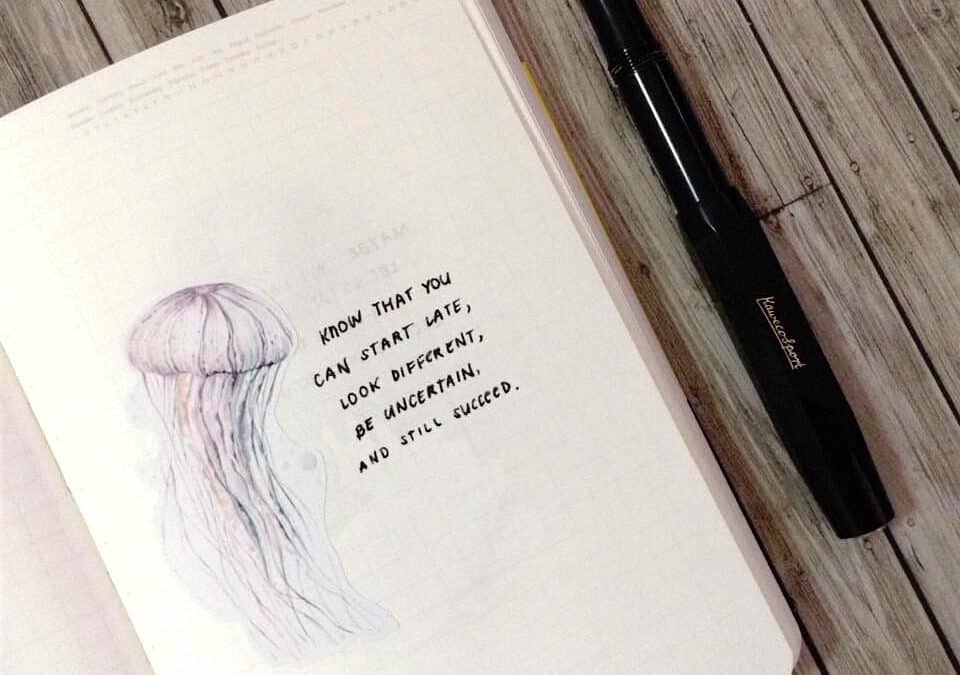 KNOW THAT YOU
CAN START LATE,
LOOK DIFFERENT,
BE UNCERTAIN,
AND STILL SUCCEED.
KawecoSport